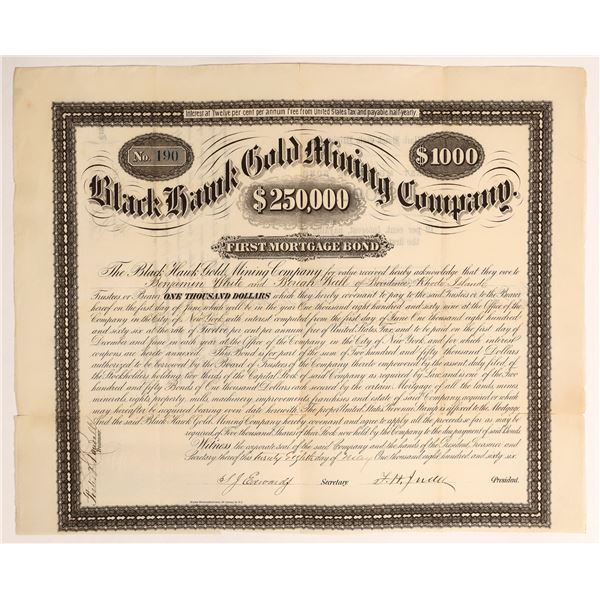 Interest at Twelve per cent per annum Free from United States Tax and payable half-yearly.
No. 190
$1000
Black Hawk Gold Mining Company.
$250,000
FIRST MORTGAGE BOND
The Black Hawk Gold Mining Company for value received hereby acknowledge that they owe to
Benjamin White and Beriah Wall of Providence Rhode Island
Trustees or Bearer ONE THOUSAND DOLLARS which they hereby covenant to pay to the said Trustees or to the Bearer
hereof on the first day of June which will be in the year One thousand eight hundred and sixty nine at the Office of the
Company in the City of New York with interest computed from the first day of June One thousand eight hundred
and sixty six at the rate of Twelve per cent per annum free of United States Tax, and to be paid on the first day of
December and June in each year at the Office of the Company in the City of New York, and for which interest
coupons are hereto annexed. This Bond is for part of the sum of Two hundred and fifty thousand Dollars
authorized to be borrowed by the Board of Trustees of the Company thereto empowered by the assent duly filed of
the Stockholders holding two thirds of the Capital Stock of said Company as required by law and is one of the Two
hundred and fifty Bonds of One Thousand Dollars each secured by the certain Mortgage of all the lands, mines
minerals, rights, property, mills, machinery improvements franchises and estate of said Company acquired or which
may hereafter be acquired bearing even date herewith. The proper United States Revenue Stamp is affixed to the Mortgage
And the said Black Hawk Gold Mining Company hereby covenant and agree to apply all the proceeds so far as may be
required of Five thousand Shares of their Stock now held by the Company to the due payment of said Bonds
Witness the corporate seal of the said Company and the hands of the President, Treasurer and
Secretary thereof this twenty eighth day of May One thousand eight hundred and sixty six.
Secretary.
President.